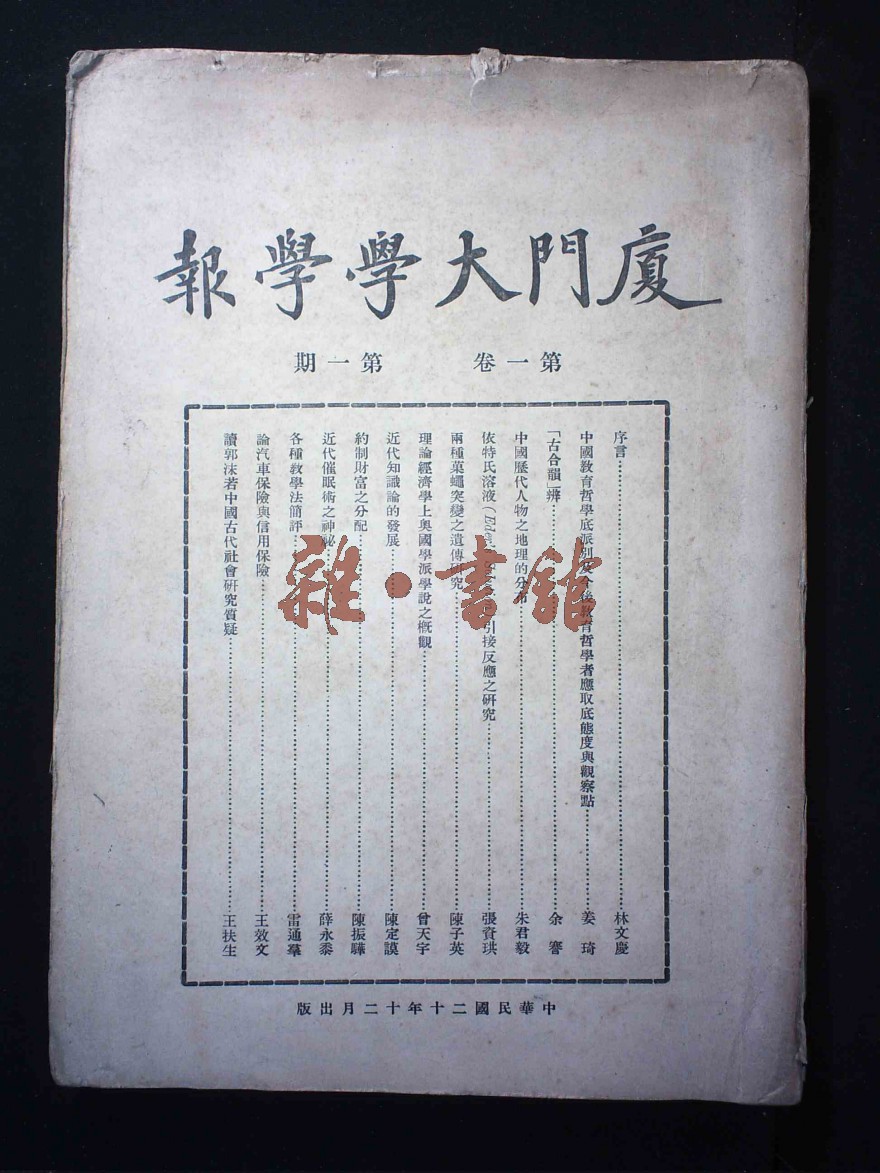 廈門大學學報
第一卷　第一期
序言……林文慶
中國教育哲學底派別及今後教育哲學者應取底態度與觀察點……姜琦
「古合韻」辨……余謇
中國歷代人物之地理的分佈……朱君毅
依特氏溶液(引接反應之研究……張資珙
兩種菓蠅突變之遺傳研究……陳子英
理論經濟學上奧國學派學說之概觀……曾天宇
近代知識論的發展……陳定謨
約制財富之分配……陳振驊
近代催眠術之神祕……薛永黍
各種教學法簡評……雷通羣
論汽車保險與信用保險……王效文
讀郭沫若中國古代社會研究質疑……王扶生
中華民國二十年十二月出版
雜·書館